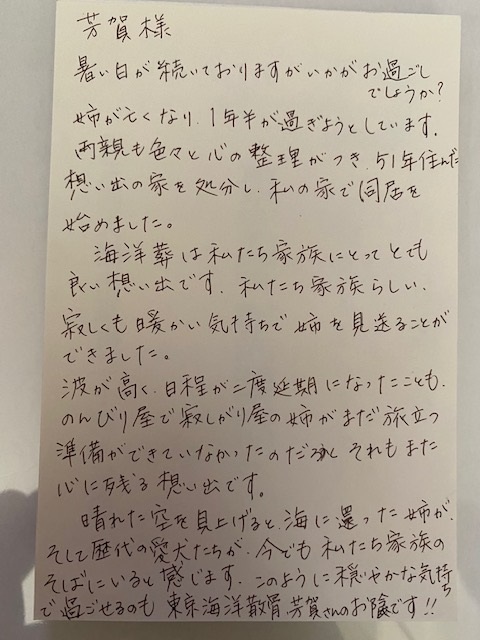 芳賀様
暑い日が続いておりますがいかがお過ごし
でしょうか?
姉が亡くなり、1年半が過ぎようとしています。
両親も色々と心の整理がつき、51年住んだ
想い出の家を処分し、私の家で同居を
始めました。
海洋葬は私たち家族にとってとても
良い想い出です。私たち家族らしい、
寂しくも暖かい気持ちで姉を見送ることが
できました。
波が高く、日程が二度延期になったことも、
のんびり屋で寂しがり屋の姉がまだ旅立つ
準備ができていなかったのだろうと それもまた
心に残る想い出です。
晴れた空を見上げると、海に還った姉が、
そして歴代の愛犬たちが、今でも私たち家族の
そばにいると感じます。このように穏やかな気持ち
で過ごせるのも 東京海洋散骨 芳賀さんのお陰です!!